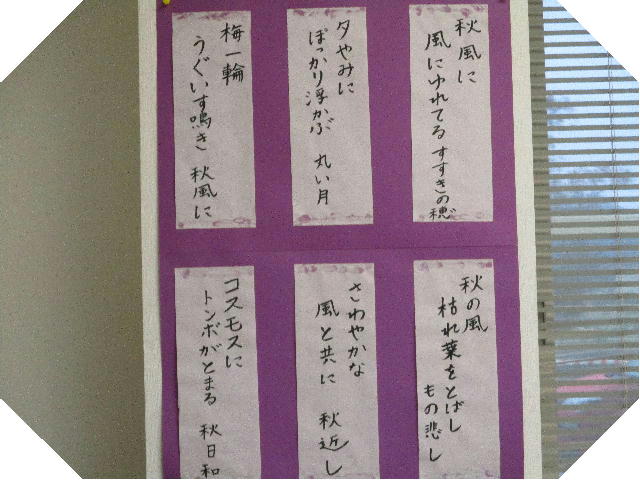 秋風に
風にゆれてる すすきの穂
夕やみに
ぽっかり浮かぶ 丸い月
梅一輪
うぐいす鳴き 秋風に
秋の風
枯れ葉をとばし
もの悲し
さわやかな
風と共に 秋近し
コスモスに
トンボがとまる 秋日和